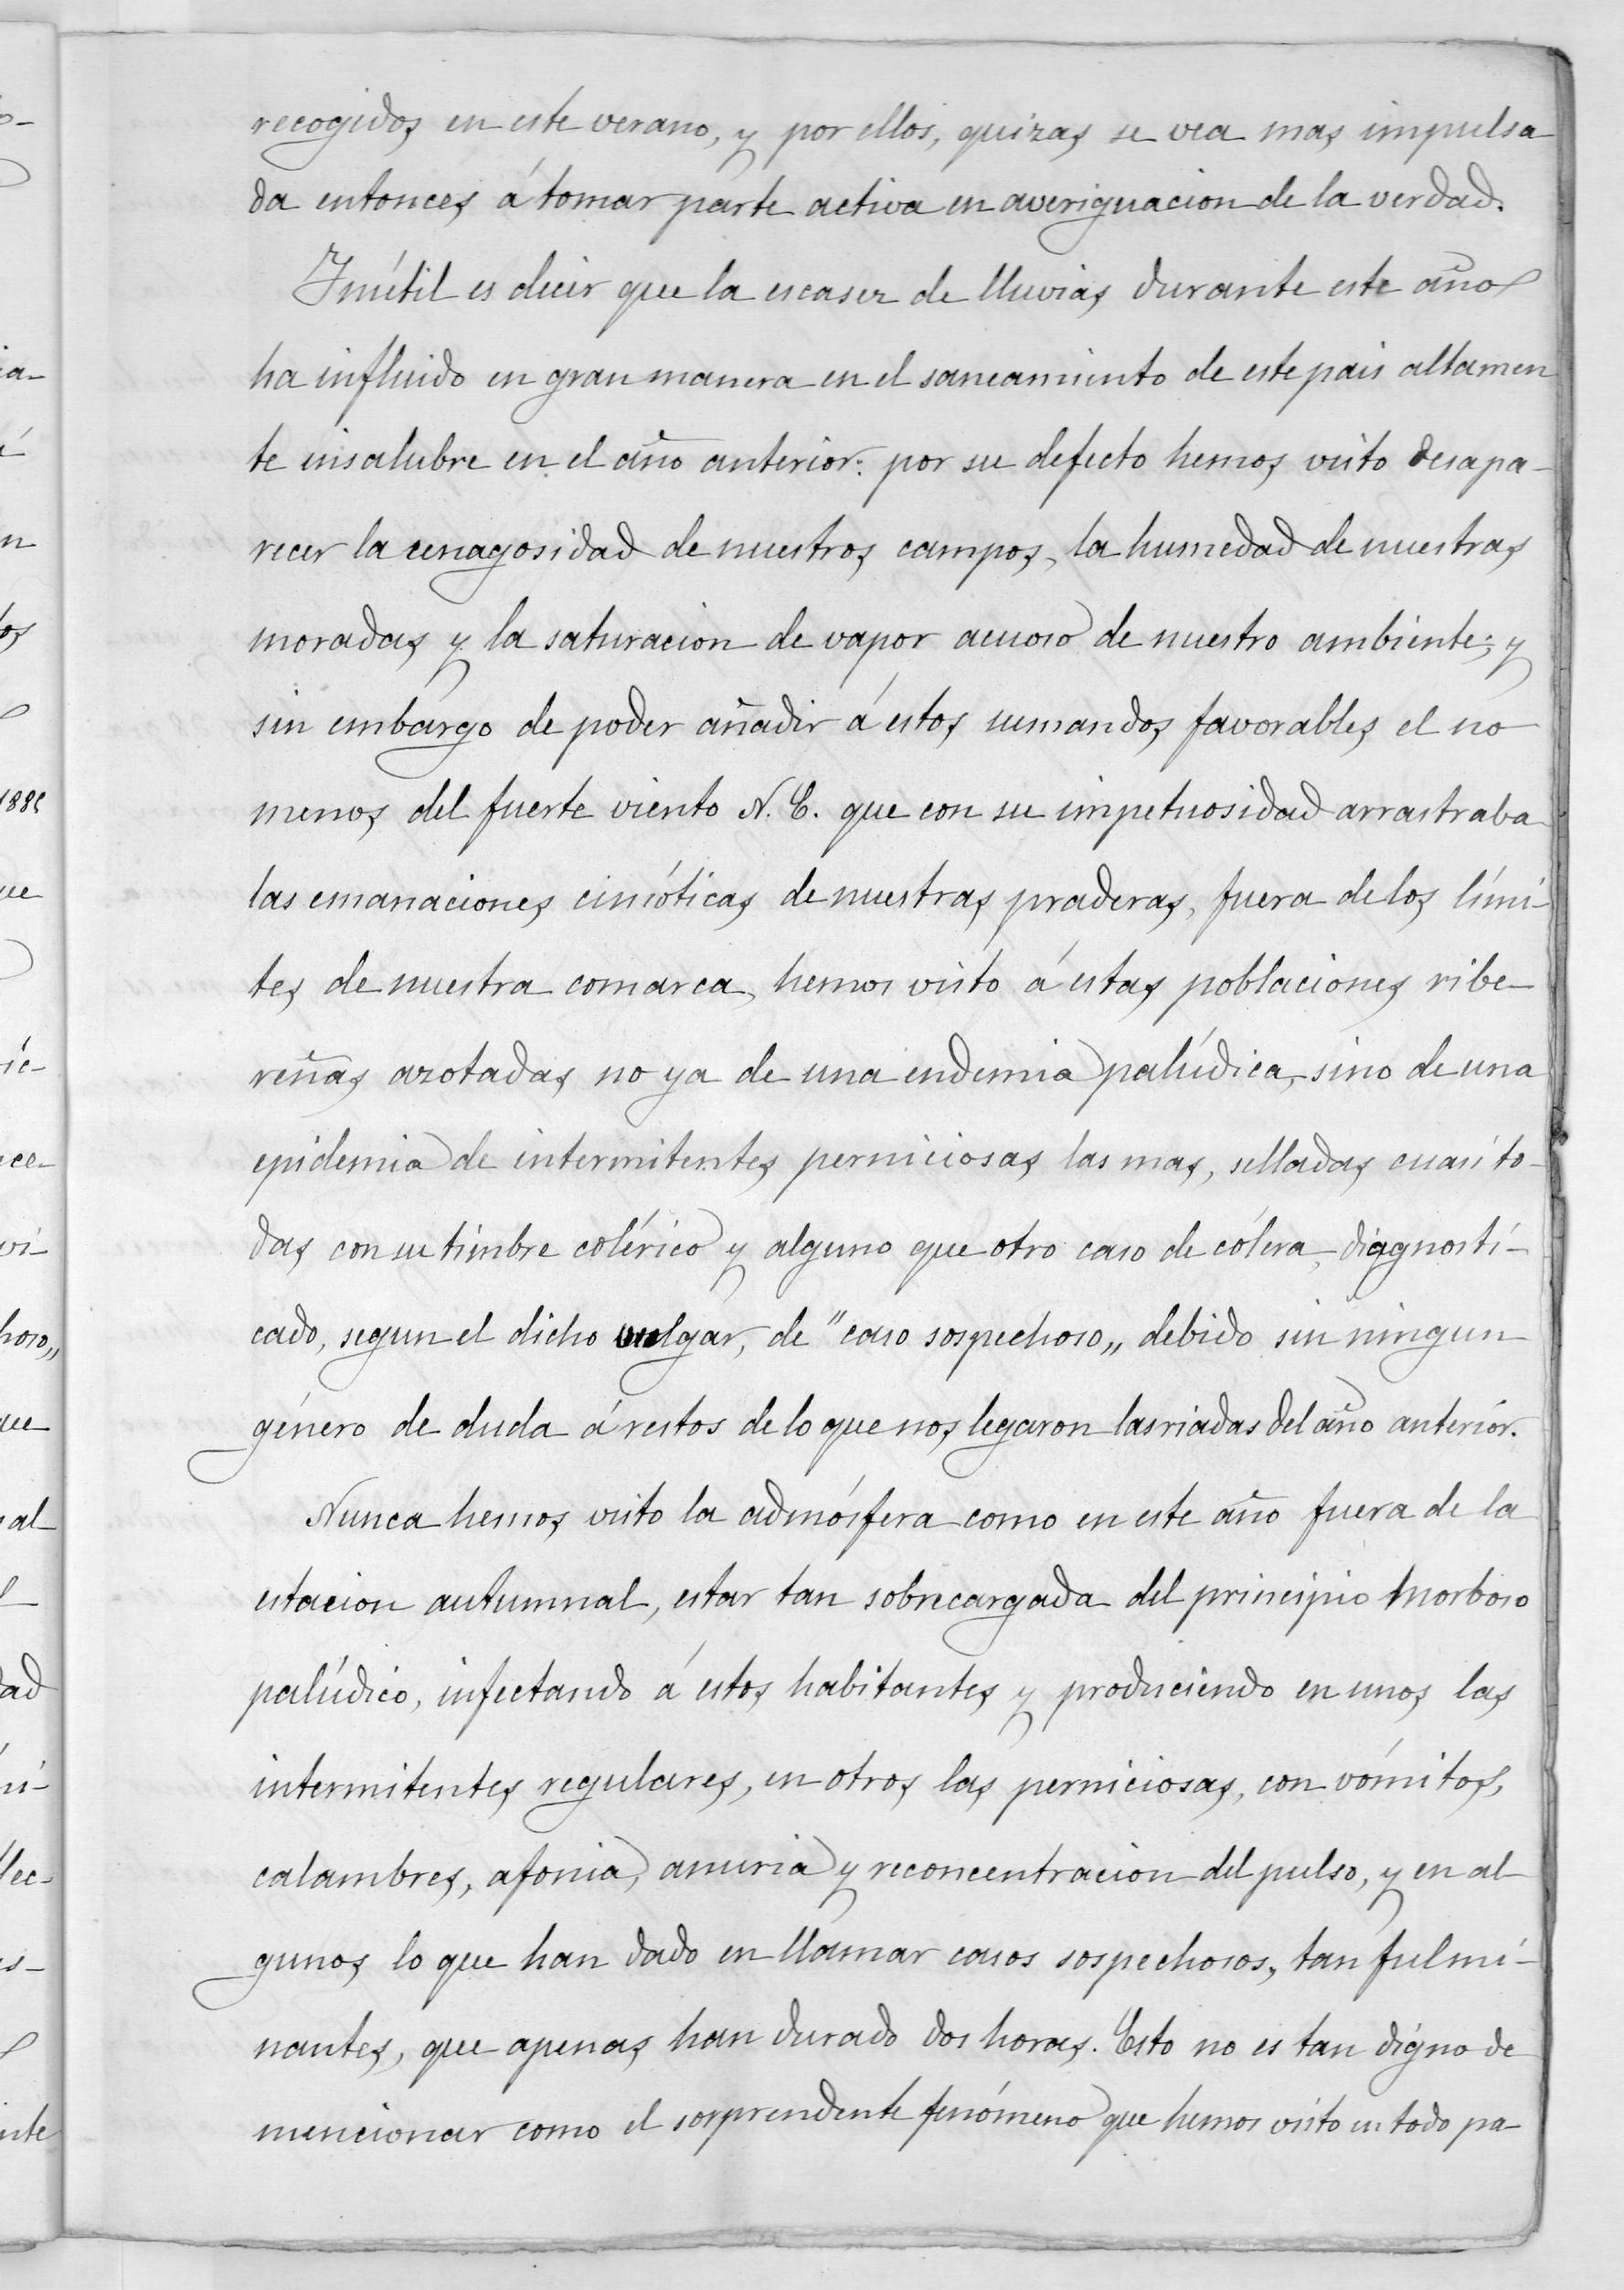 recogidos en este verano, y por ellos, quizas se vea mas impulsa
da entonces á tomar parte activa en averiguacion de la verdad.
Inútil es decir que la escasez de lluvias durante este año
ha influido en gran manera en el saneamiento de este pais altamen
te insalubre en el año anterior: por su defecto hemos visto desapa-
recer la cenagosidad de nuestros campos, la humedad de nuestras
moradas y la saturacion de vapor acuoso de nuestro ambiente; y
sin embargo de poder añadir á estos sumandos favorables el no
menos del fuerte viento N. E. que con su impetuosidad arrastraba
las emanaciones cimóticas de nuestras praderas, fuera de los lími-
tes de nuestra comarca, hemos visto á estas poblaciones ribe-
reñas azotadas no ya de una endemia palúdica, sino de una
epidemia de intermitentes perniciosas las mas, selladas cuasi to-
das con su timbre colérico y alguno que otro caso de cólera, diagnosti-
cado, segun el dicho vulgar, de "caso sospechoso„ debido sin ningun
género de duda á restos de lo que nos legaron las riadas del año anterior.
Nunca hemos visto la admósfera como en este año fuera de la
estacion autumnal, estar tan sobrecargada del principio morboso
palúdico, infectando á estos habitantes y produciendo en unos las
intermitentes regulares, en otros las perniciosas, con vómitos,
calambres, afonia, anuria y reconcentracion del pulso, y en al
gunos lo que han dado en llamar casos sospechosos, tan fulmi-
nantes, que apenas han durado dos horas. Esto no es tan digno de
mencionar como el sorprendente fenómeno que hemos visto en todo pa-